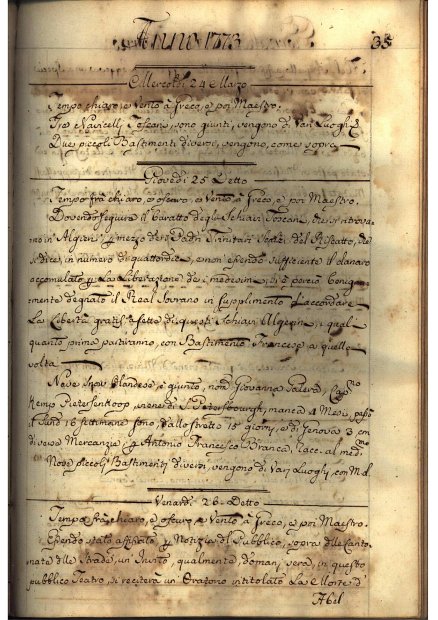 Anno 1773
35
Mercoldi 24 Marzo
Tempo chiaro, e Vento a Greco, e poi Maestro.
Tre Navicelli Toscani, sono giunti, vengono di Vari Luoghi, e
Due piccoli Bastimenti diversi, vengono, come sopra
Giovedi 25 Detto
Tempo frà chiaro, e oscuro, e Vento a Greco, e poi Maestro.
Dovendo seguire il baratto degli Schiavi Toscani, che si ritrova-
no in Algieri p mezzo dei Padri Trinitari Scalzi del Riscatto,
in numero di quattordici, e non essendo sufficiente il danaro
accumulato p La Liberazione dei medesimi, si è perciò benigna-
mente degnato il Real Sovrano in Supplimento d'accordare
La Libertà gratis a sette di questi Schiavi Algerini, i quali
quanto prima partiranno, con Bastimento Francese a quella
volta.
Nave Olandese, è giunto, nom Giovanna Cap.no
Kemp Pietersenkoop, viene di S. Petersbourgh, manca 4 Mesi, passò
il Sund 10 settimane sono, dallo stretto 15 giorni, e di Genova 3 con
diverse Mercanzie, p Antonio Francesco Branca, racc. al med.mo
Nove piccoli Bastimenti diversi, vengono di Vari Luoghi, con M.
Venardi 26 Detto
Tempo frà chiaro, e oscuro, e Vento a Greco, e poi Maestro.
Essendo stato affissato p Notizia del Pubblico, sopra alle Canto-
nate delle Strade, un Invito, qualmente domani sera, in questo
pubblico Teatro, si reciterà un Oratorio intitolato La Morte d'
Abel